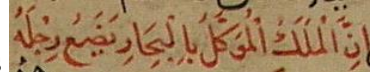 اِنَّ الْمَلَكَ الْمُوَكَّلَ بِالْبِحَارِ يَضَعُ رِجْلَهُ